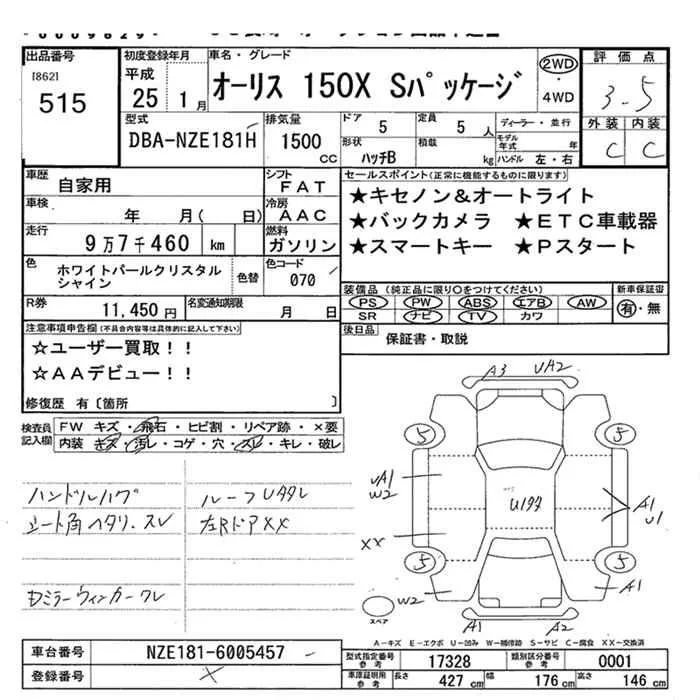 出品番号
[862]
515
初度登録年月
平成
25 1月
車名・グレード
オーリス 150X Sパッケージ
2WD
4WD
評価点
3.5
外装 内装
C C
型式
DBA-NZE181H
排気量
1500 cc
ドア 5
定員 5 人
形状 ハッチB
積載 kg
ディーラー・並行
モデル年式 年
ハンドル 左・右
車歴
自家用
シフト
FAT
車検
年 月( 日)
冷房
AAC
走行
9万7千460 km
燃料
ガソリン
色
ホワイトパールクリスタルシャイン
色替
色コード
070
R券
11,450円
名変通知期限
月 日
セールスポイント(正常に機能するものに限ります)
★キセノン&オートライト
★バックカメラ ★ETC車載器
★スマートキー ★Pスタート
装備品(純正品に限り○をつけてください)
PS PW ABS エアB AW
SR ナビ TV カワ
新車保証書
有・無
後日品
保証書・取説
注意事項申告欄(不具合内容等は具体的に記入して下さい)
☆ユーザー買取!!
☆AAデビュー!!
修復歴 有〔箇所 〕
検査員記入欄
FW キズ・飛石・ヒビ割・リペア跡・×要
内装 キズ・汚レ・コゲ・穴・スレ・キレ・破レ
ハンドルハゲ
シート角ヘタリ.スレ
右ミラーウィンカーワレ
ルーフUタタレ
左RドアXX
A3 UA2
5 5
UA1
W2
XX
U1タタ
A1
U1
5 5
W2
A1
スペア
A1 A2
A-キズ E-エクボ U-凹み W-補修跡 S-サビ C-腐食 XX-交換済
車台番号
NZE181-6005457
登録番号
型式指定番号
参考
17328
類別区分番号
参考
0001
車庫証明用
参考
長さ 427 cm
幅 176 cm
高さ 146 cm